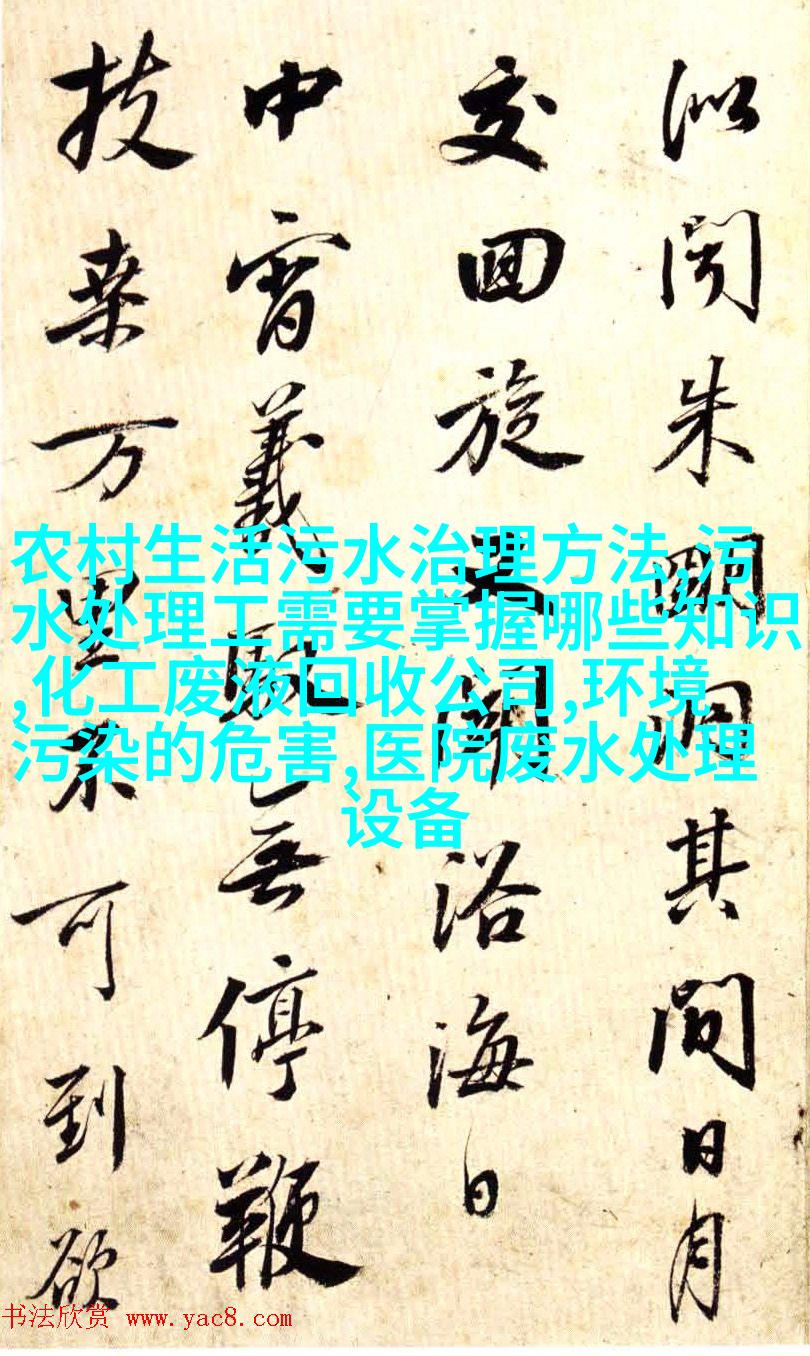 似闻朱明洞其间日月
交回旋又闻浴海日
中宵羲馭无停鞭
扶桒万里不可到欲
农村生活污水治理方法,污
水处理工需要掌握哪些知识
,化工废液回收公司,环境
污染的危害,医院废水处理
设备
书法欣赏 www.yac8.com